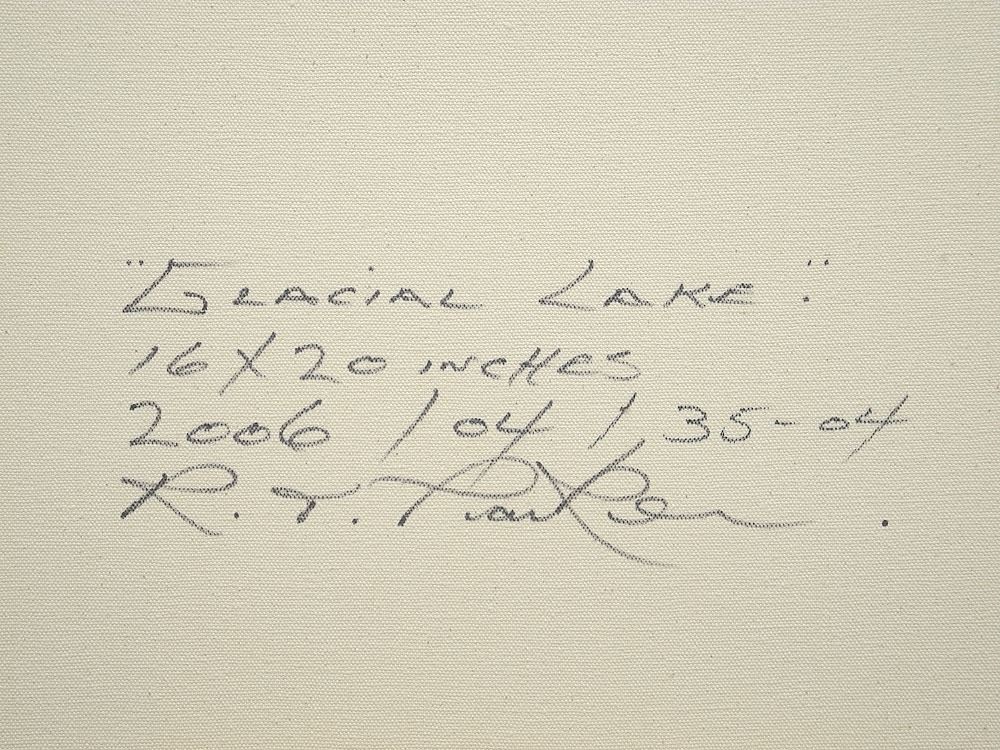 "Glacial Lake."
16 X 20 inches
2006 / 04 / 35-04
R. T. Parker .